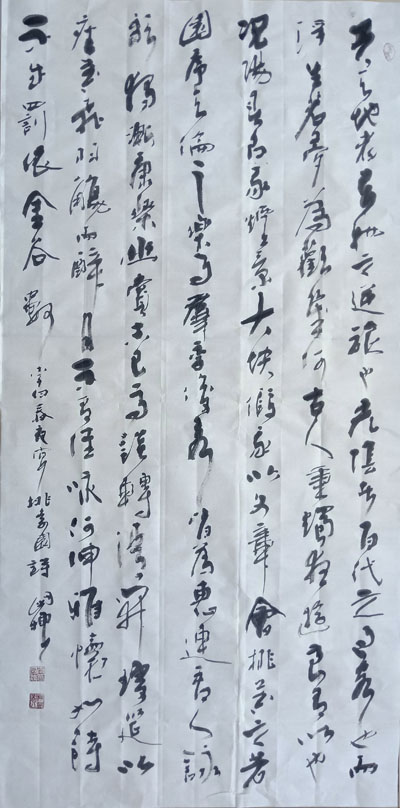 天地者萬物之逆旅也光陰者百代之過客也而
浮生若夢為歡幾何古人秉燭夜遊良有以也
況陽春召我煙景大塊假我以文章會桃花之芳
園序天倫之樂事羣季俊秀皆為惠連吾人詠
歌獨慚康樂幽賞未已高談轉清開瓊筵以
坐花飛羽觴而醉月不有佳詠何伸雅懷如詩
不成罰依金谷數
李白春夜宴桃李園詩